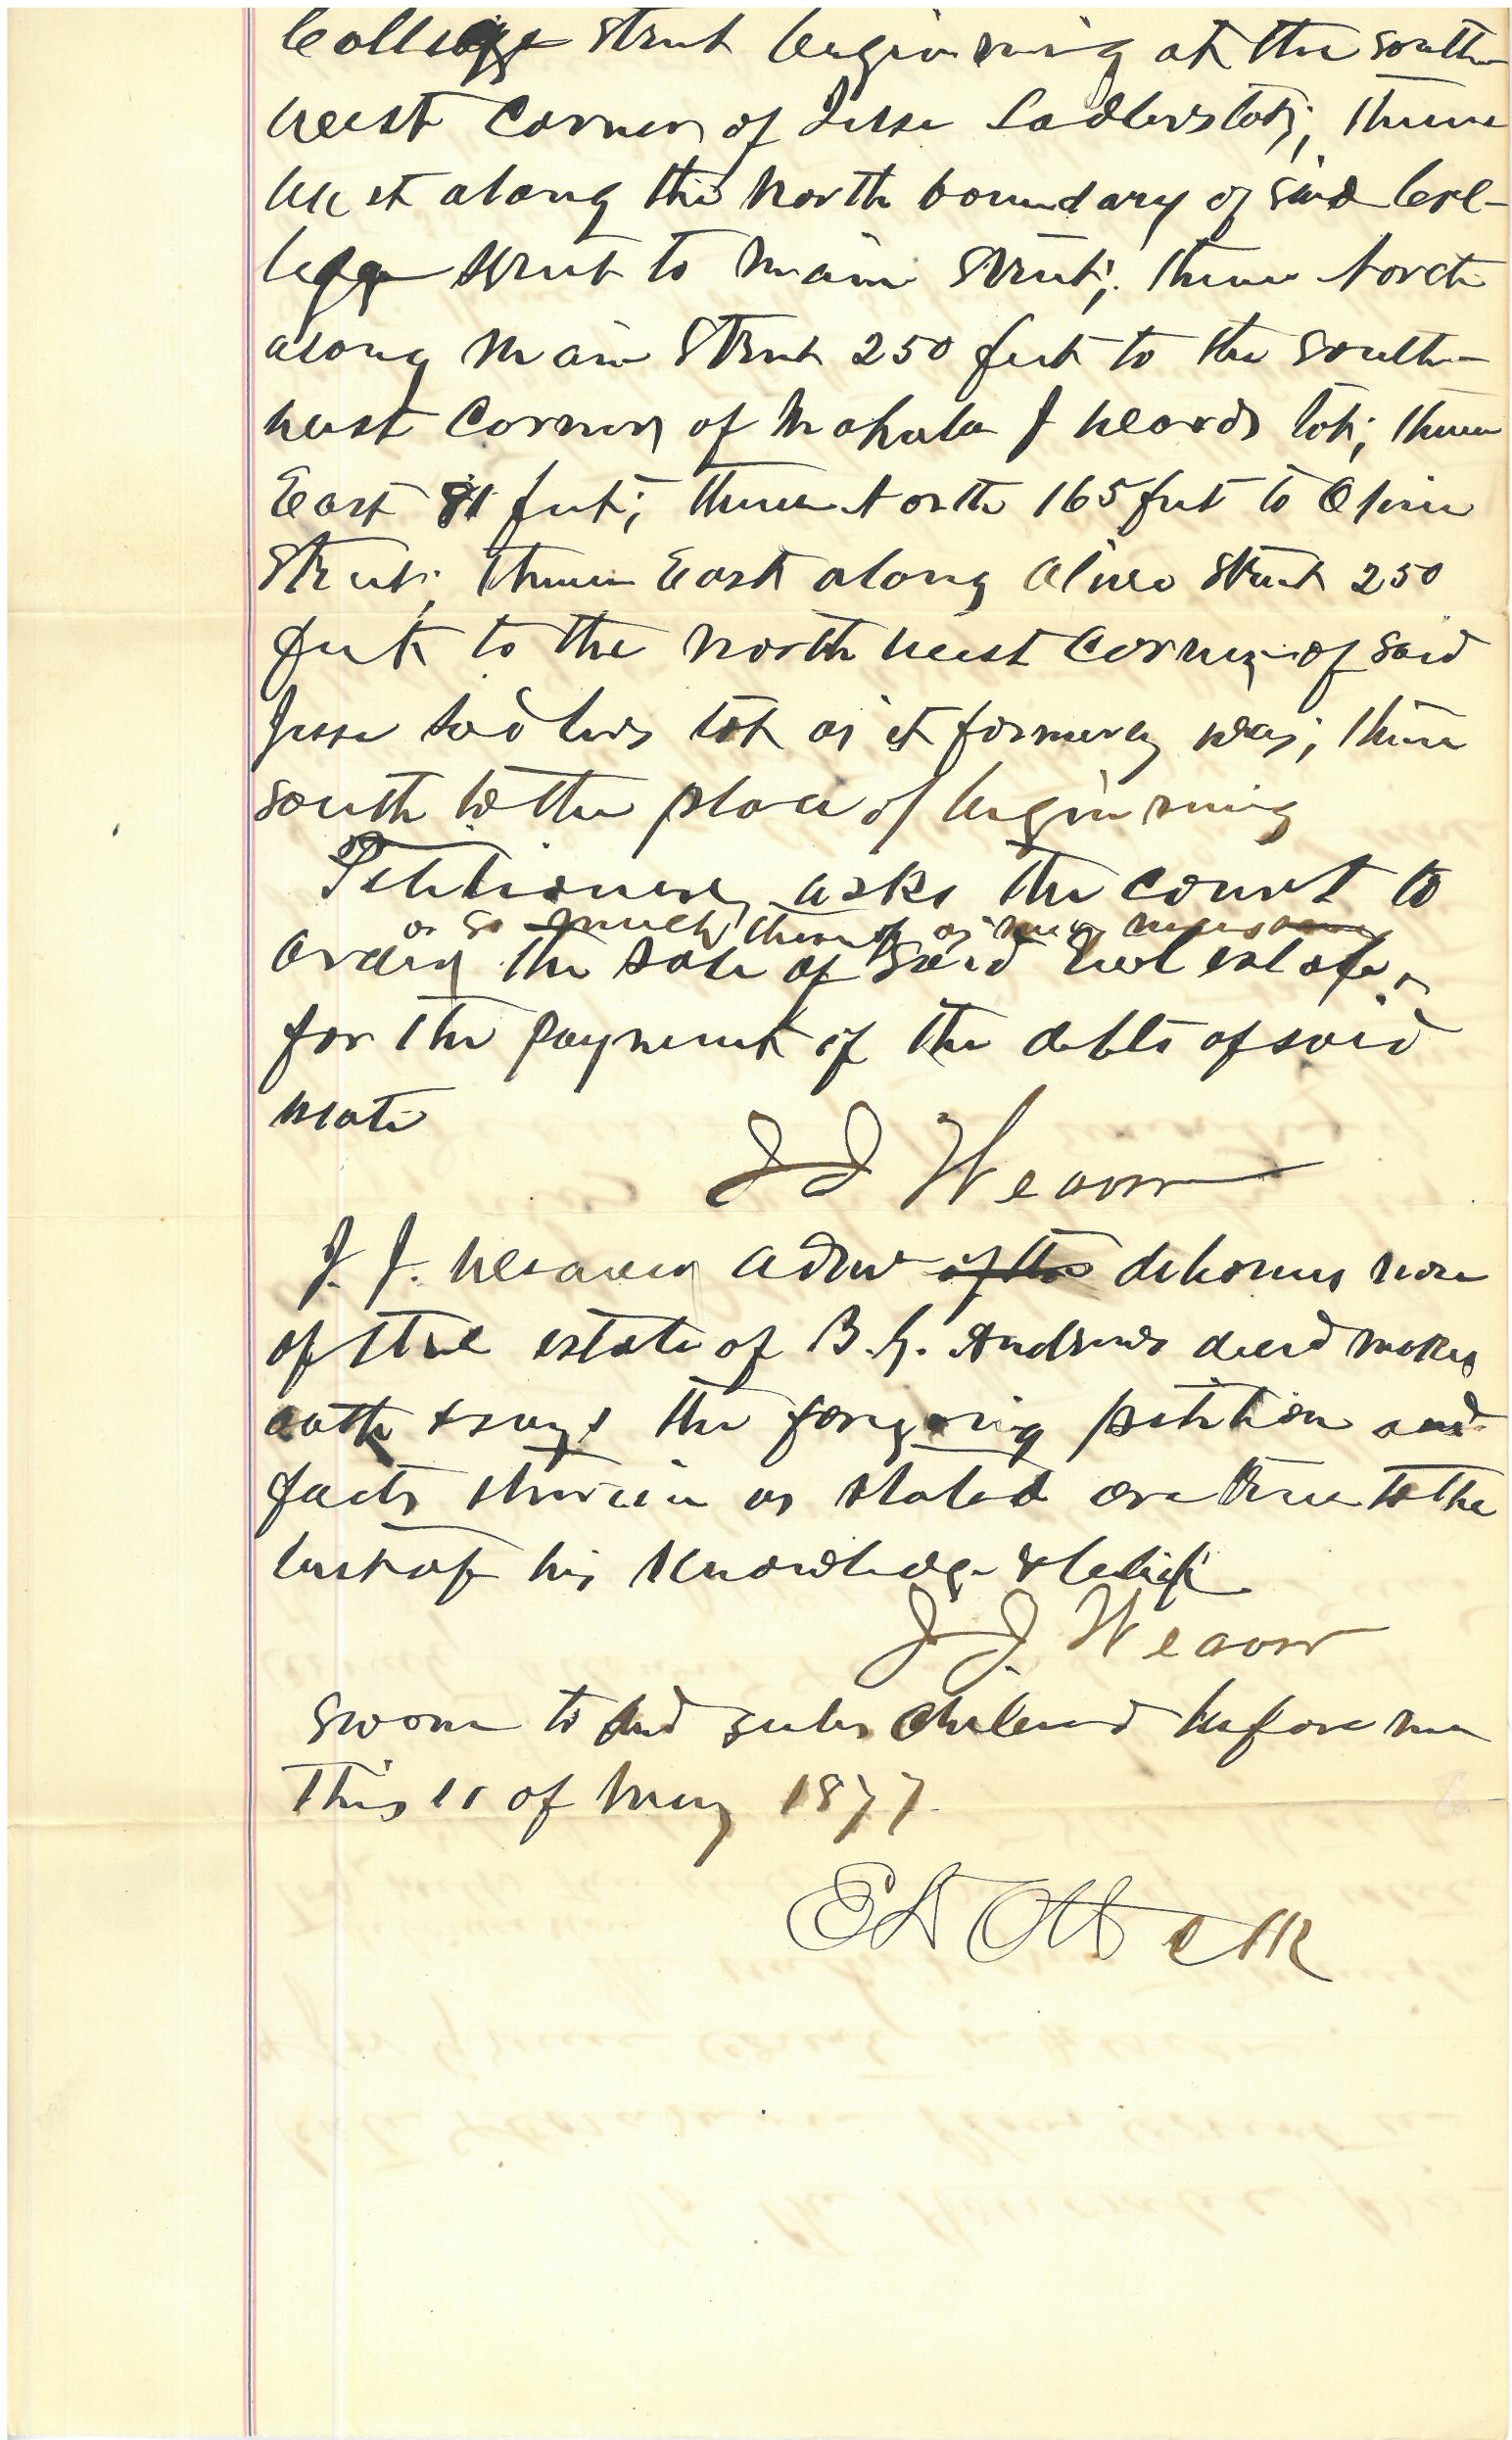 College street beginning at the south-
west corner of Jesse Sadlers lot; thence
west along the North boundary of said Col-
lege street to Main street; thence North
along Main street 250 feet to the south-
west corner of Mahala J Weards lot; thence
East 81 feet; thence North 165 feet to Olive
Street; thence East along Olive street 250
feet to the north west corner of said
Jesse Sadlers lot as it formerly was; thence
south to the place of beginning
Petitioner asks the court to
or so much thereof as may necessary
order the sale of said real estate
for the payment of the debts of said
estate
J J Weaver
J. J. Weaver admr of the debonis non
of the estate of B. G. Andrews decd makes
oath & says the foregoing petition and
facts therein as stated are true to the
best of his knowledge & belief
J. J. Weaver
sworn to and subscribed before me
This 11 of May 1877
clk